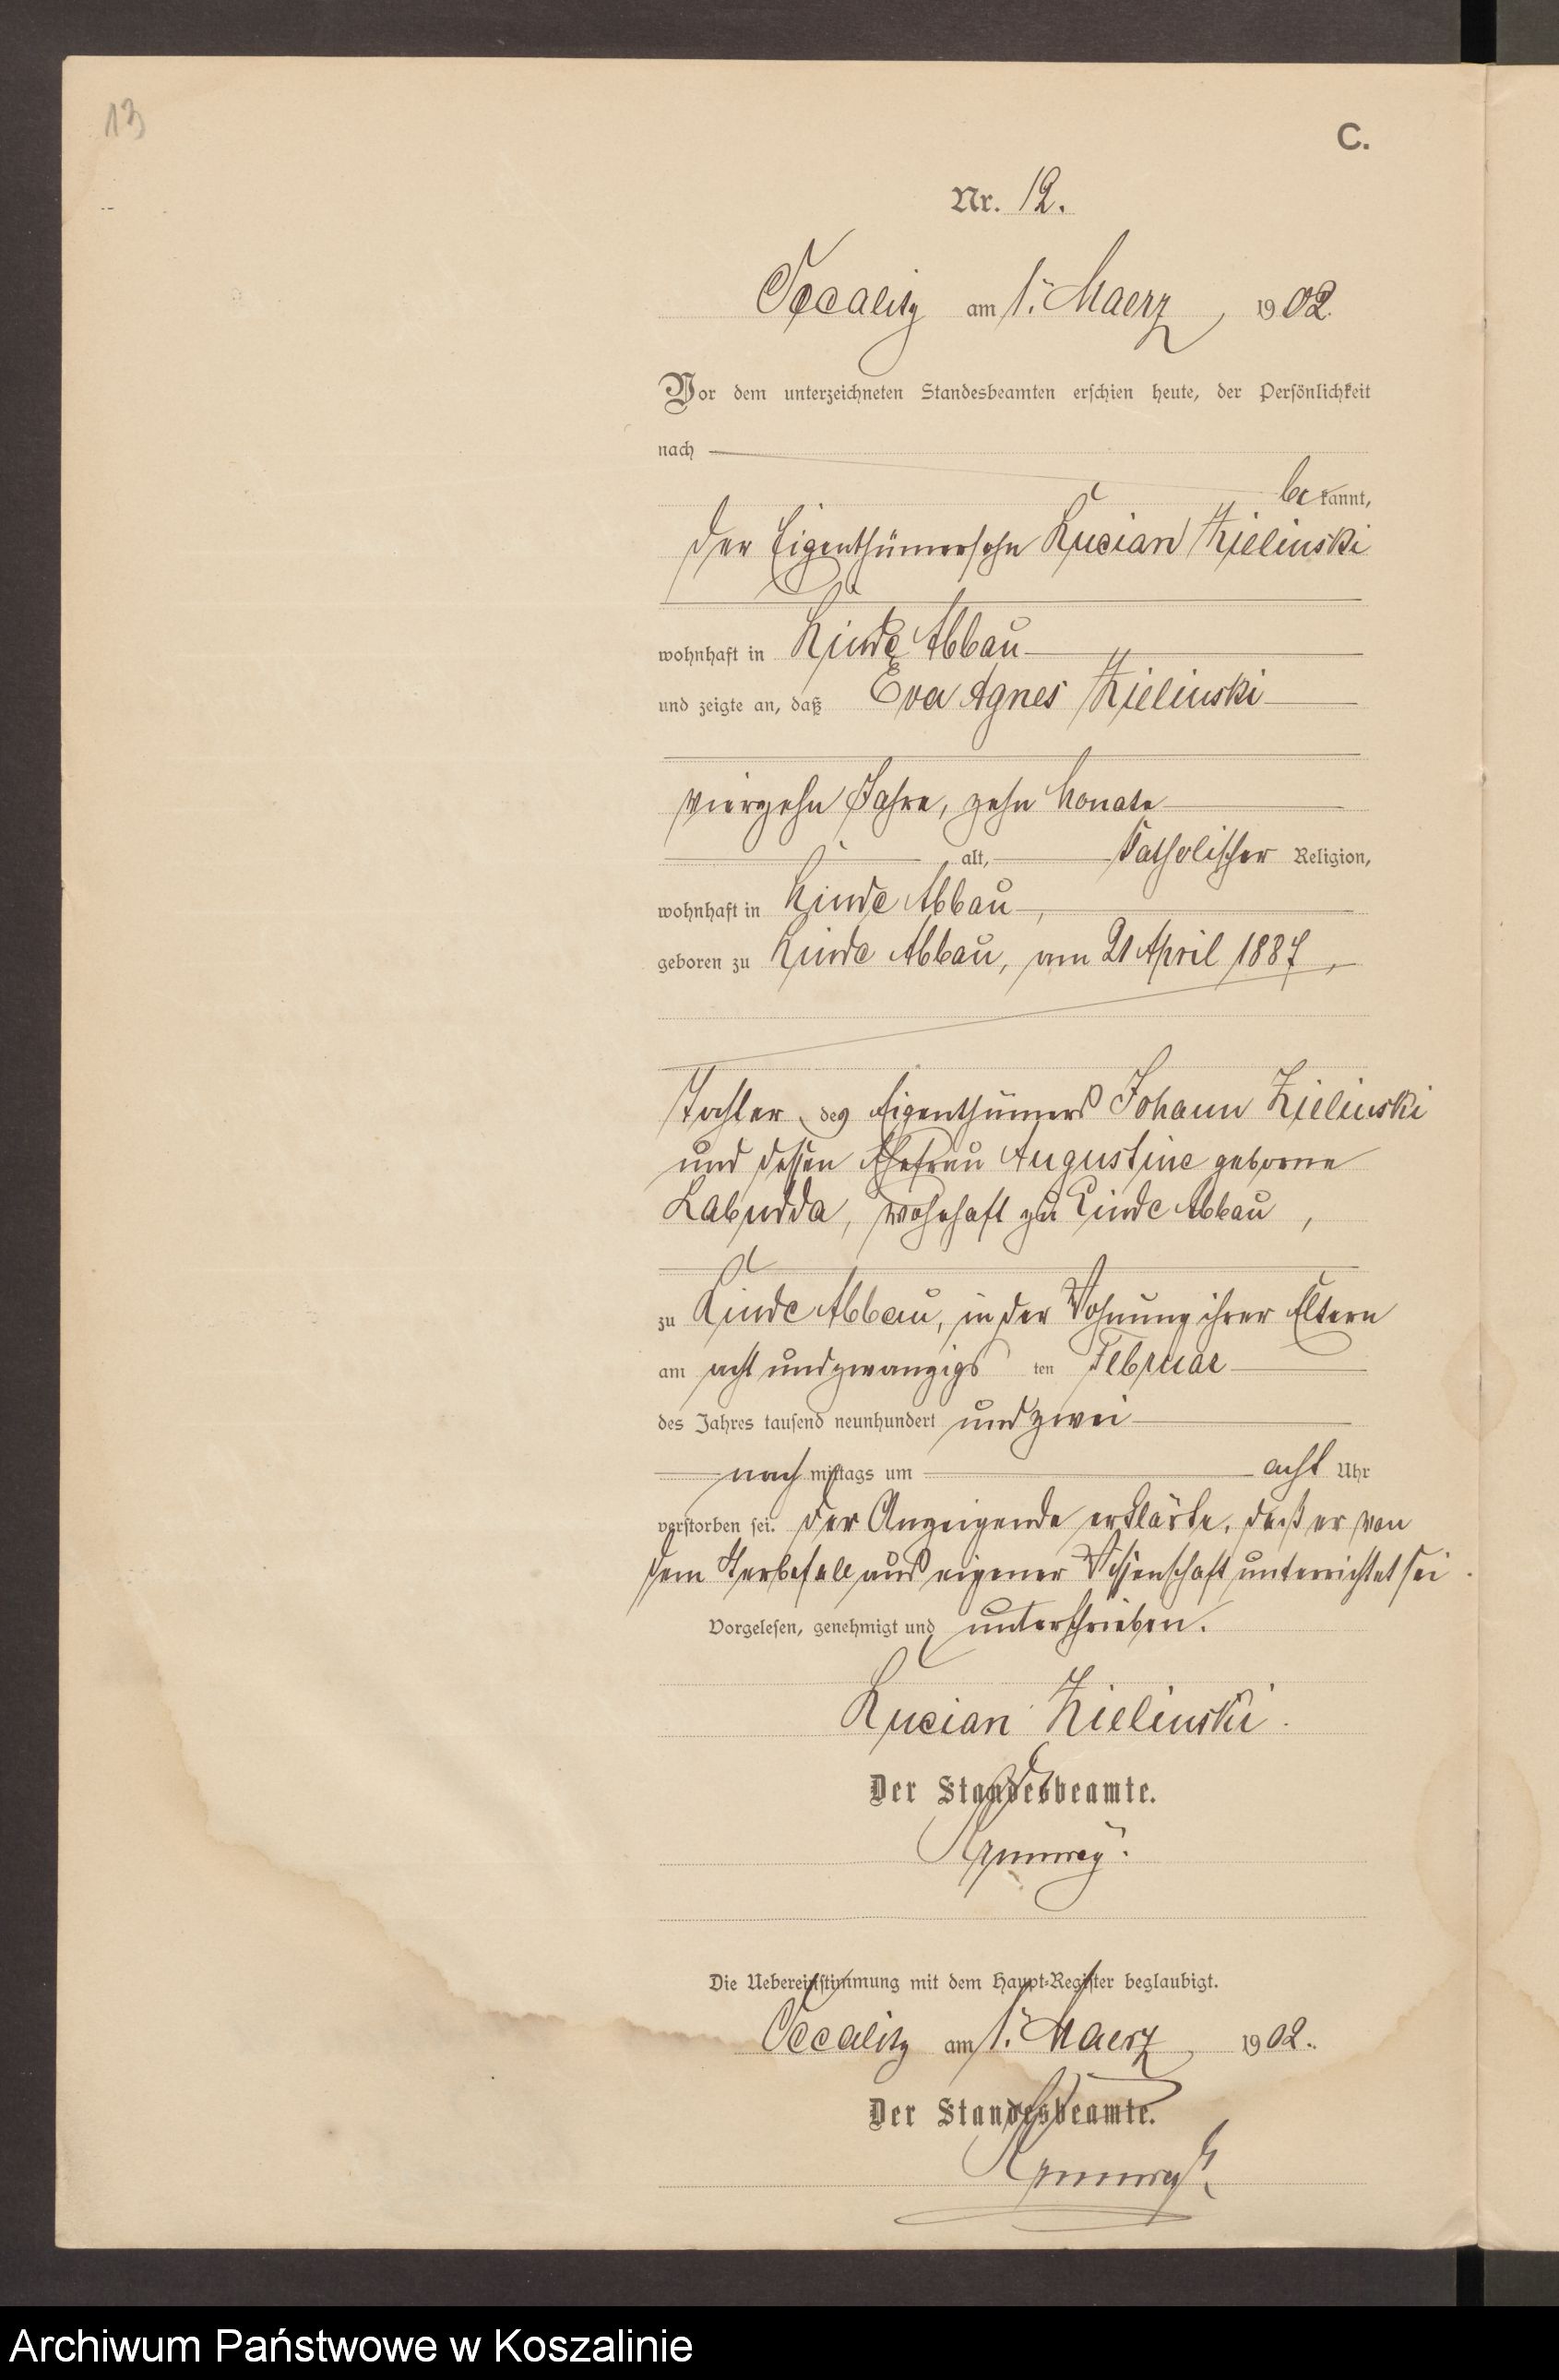 13
C.
Nr. 12.
Occalitz am 1. Maerz 1902.
Vor dem unterzeichneten Standesbeamten erschien heute, der Persönlichkeit
nach
bekannt,
der Eigenthümersohn Lucian Zielinski
wohnhaft in Linde Abbau
und zeigte an, daß Eva Agnes Zielinski
vierzehn Jahre, zehn Monate
alt, katholischer Religion,
wohnhaft in Linde Abbau,
geboren zu Linde Abbau, am 21 April 1887,
Tochter des Eigenthümers Johann Zielinski
und dessen Ehefrau Augustine geborne
Labudda, wohnhaft zu Linde Abbau,
zu Linde Abbau, in der Wohnung ihrer Eltern
am acht und zwanzigsten Februar
des Jahres tausend neunhundert und zwei
nachmittags um acht Uhr
verstorben sei. Der Anzeigende erklärte, daß er von
dem Sterbefall aus eigener Wissenschaft unterrichtet sei.
Vorgelesen, genehmigt und unterschrieben.
Lucian Zielinski.
Der Standesbeamte.
Die Uebereinstimmung mit dem Haupt-Register beglaubigt.
Occalitz am 1. Maerz 1902.
Der Standesbeamte.
Archiwum Państwowe w Koszalinie